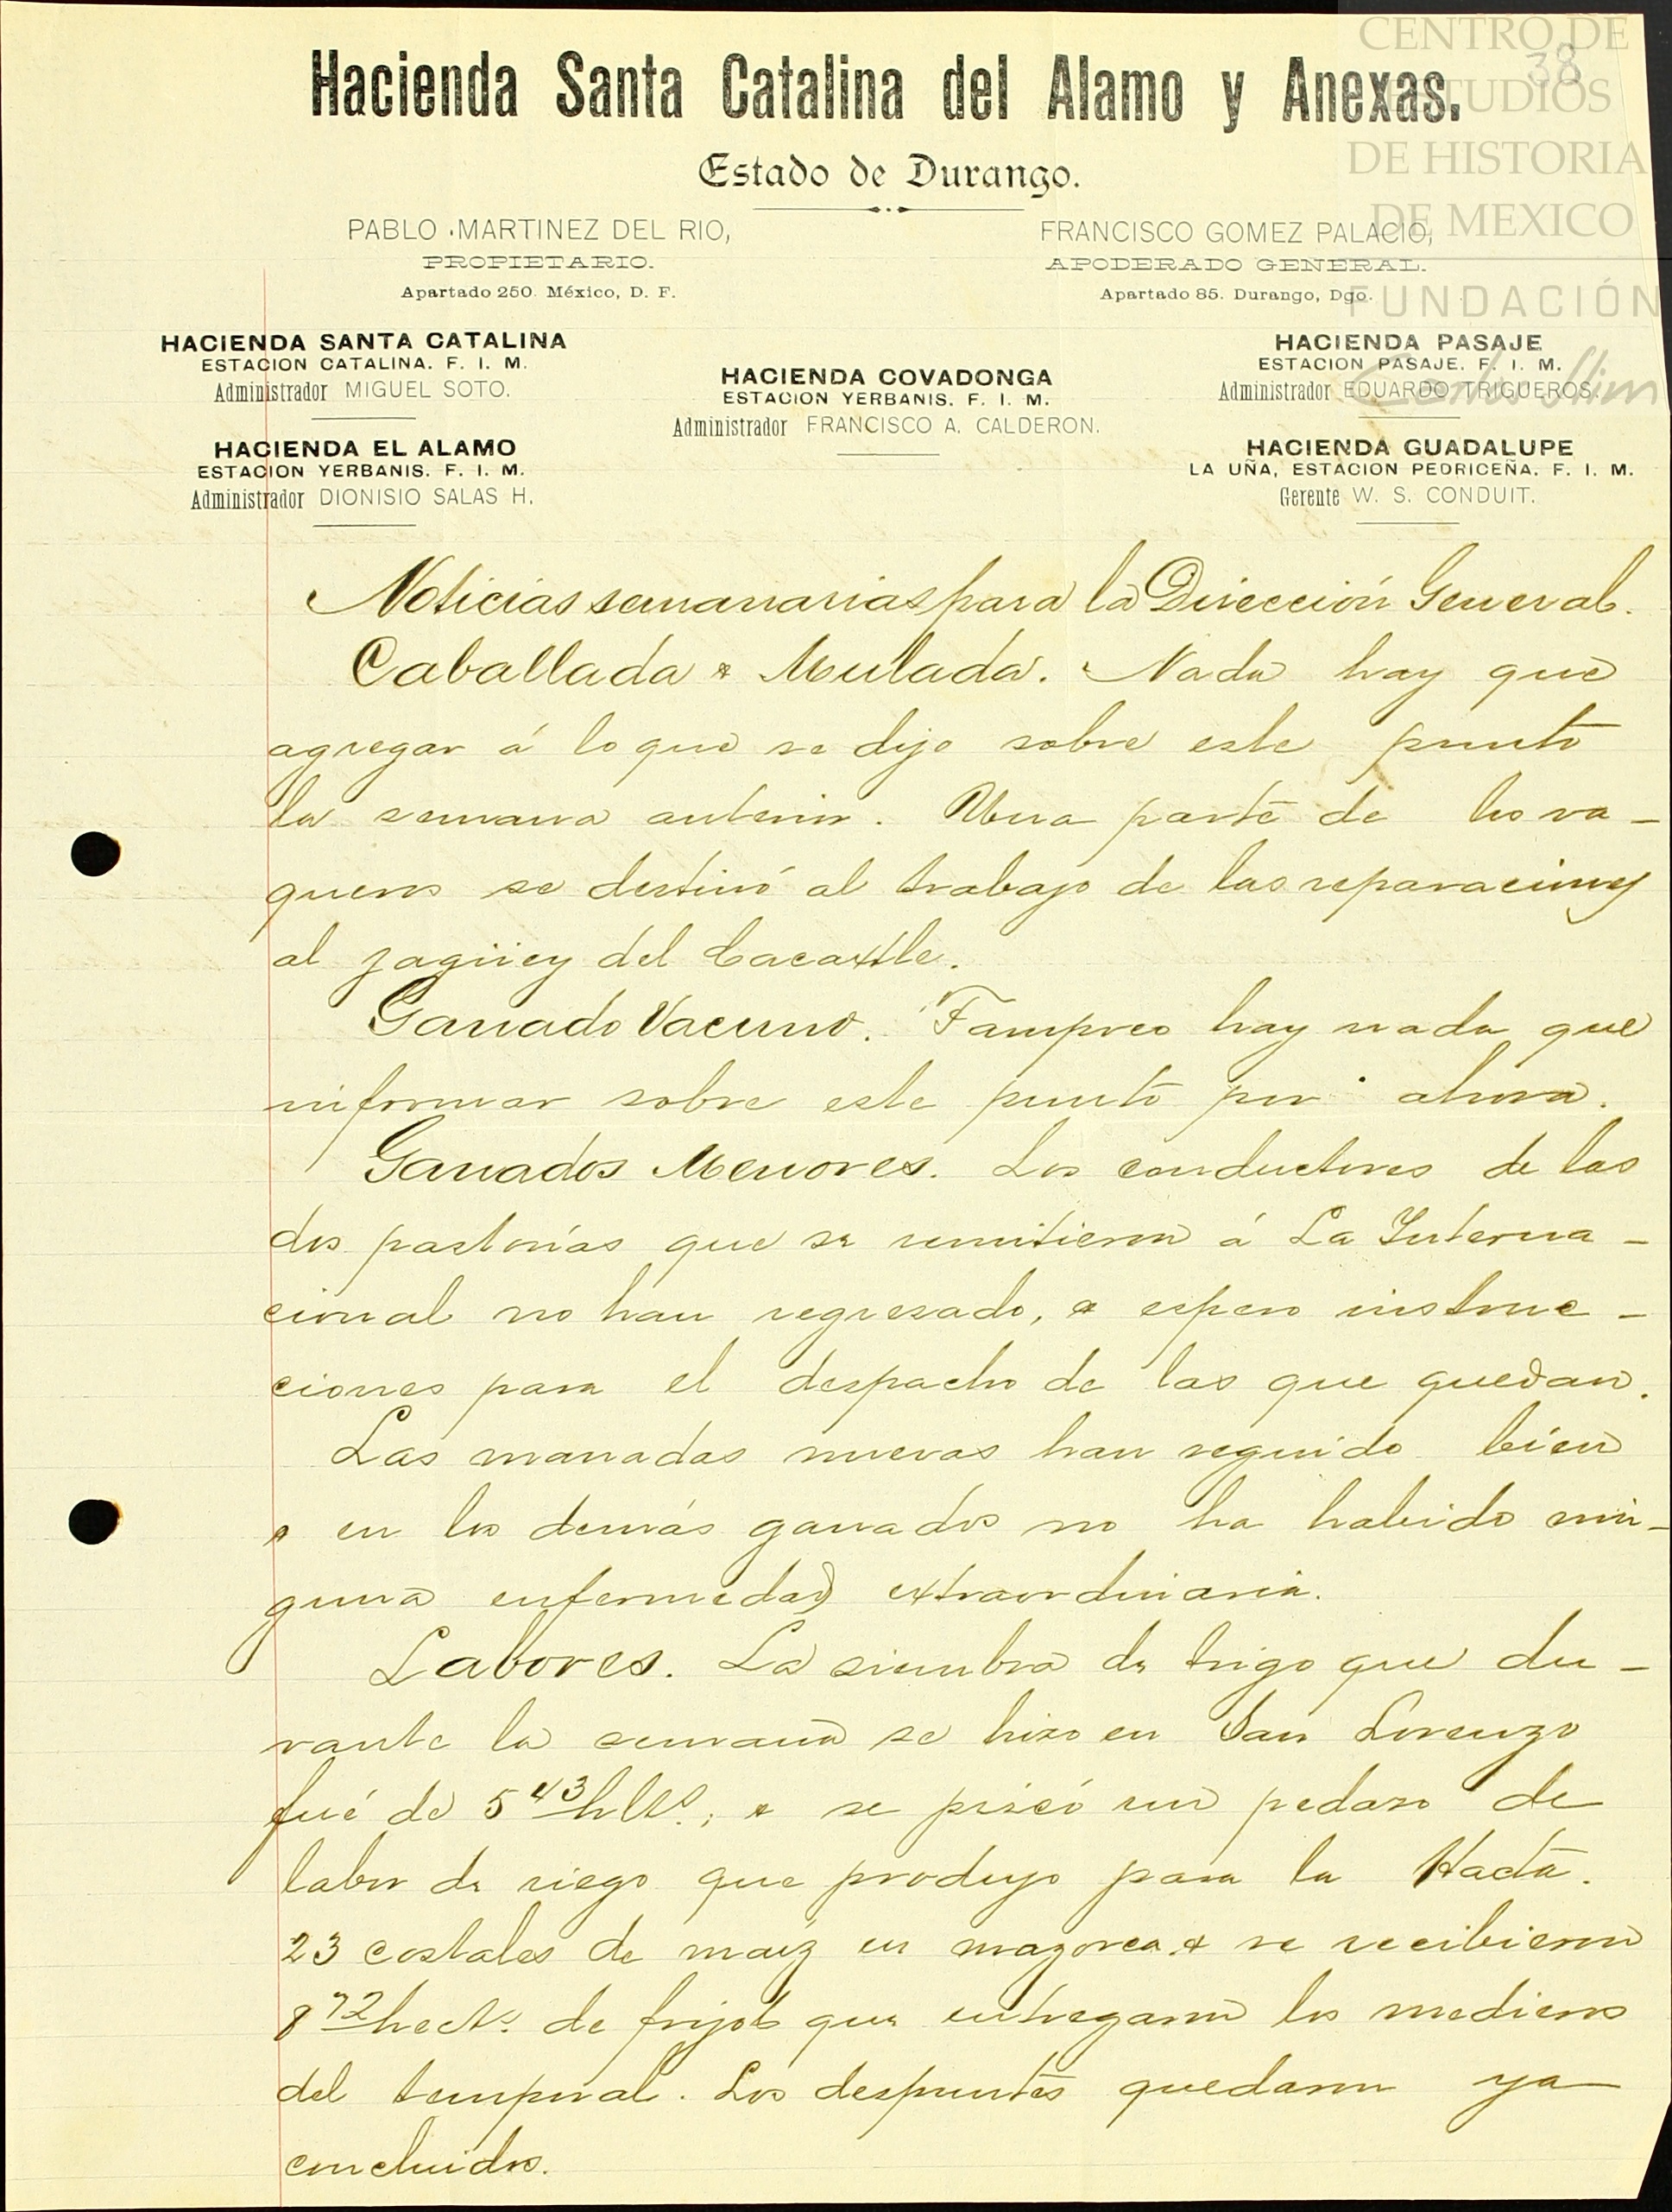 CENTRO DE
ESTUDIOS
DE HISTORIA
DE MEXICO
FUNDACIÓN
Carlos Slim
38
Hacienda Santa Catalina del Alamo y Anexas.
Estado de Durango.
PABLO MARTINEZ DEL RIO,
PROPIETARIO.
Apartado 250. México, D. F.
FRANCISCO GOMEZ PALACIO,
APODERADO GENERAL.
Apartado 85. Durango, Dgo.
HACIENDA SANTA CATALINA
ESTACION CATALINA. F. I. M.
Administrador MIGUEL SOTO.
HACIENDA EL ALAMO
ESTACION YERBANIS. F. I. M.
Administrador DIONISIO SALAS H.
HACIENDA COVADONGA
ESTACION YERBANIS. F. I. M.
Administrador FRANCISCO A. CALDERON.
HACIENDA PASAJE
ESTACION PASAJE. F. I. M.
Administrador EDUARDO TRIGUEROS.
HACIENDA GUADALUPE
LA UÑA, ESTACION PEDRICEÑA. F. I. M.
Gerente W. S. CONDUIT.
Noticias semanarias para la Dirección General.
Caballada & Mulada. Nada hay que
agregar á lo que se dijo sobre este punto
la semana anterior. Una parte de los va-
queros se destinó al trabajo de las reparaciones
al jagüey del Cacaxtle.
Ganado Vacuno. Tampoco hay nada que
informar sobre este punto por ahora.
Ganados Menores. Los conductores de las
dos pastorías que se remitieron á La Interna-
cional no han regresado, & espero instruc-
ciones para el despacho de las que quedan.
Las manadas nuevas han seguido bien
& en los demás ganados no ha habido nin-
guna enfermedad extraordinaria.
Labores. La siembra de trigo que du-
rante la semana se hizo en San Lorenzo
fué de 5 43 hlts.; & se piscó un pedazo de
labor de riego que produjo para la Hacda.
23 costales de maíz en mazorca & se recibieron
8 72 hects. de frijol que entregaron los medieros
del temporal. Los despuntes quedaron ya
concluidos.